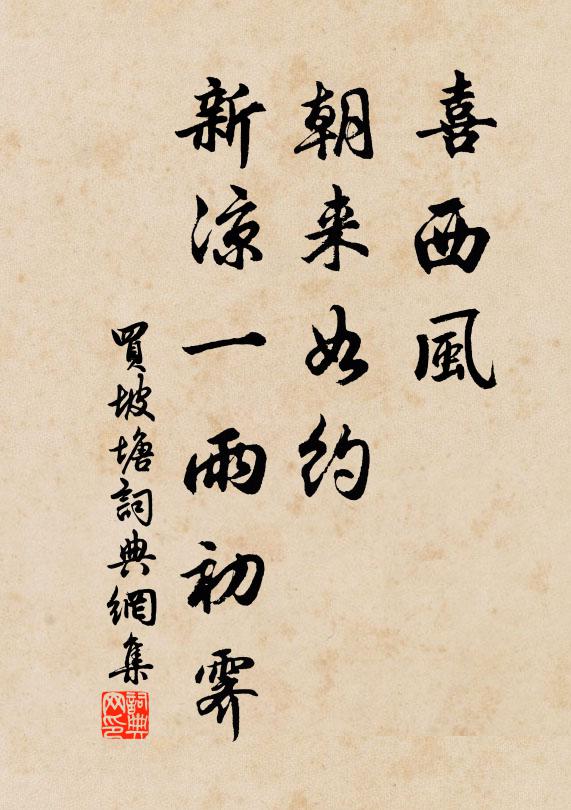 喜西風
朝来如约
新涼一雨初霽
買坡塘詞典網集
詞典
网印